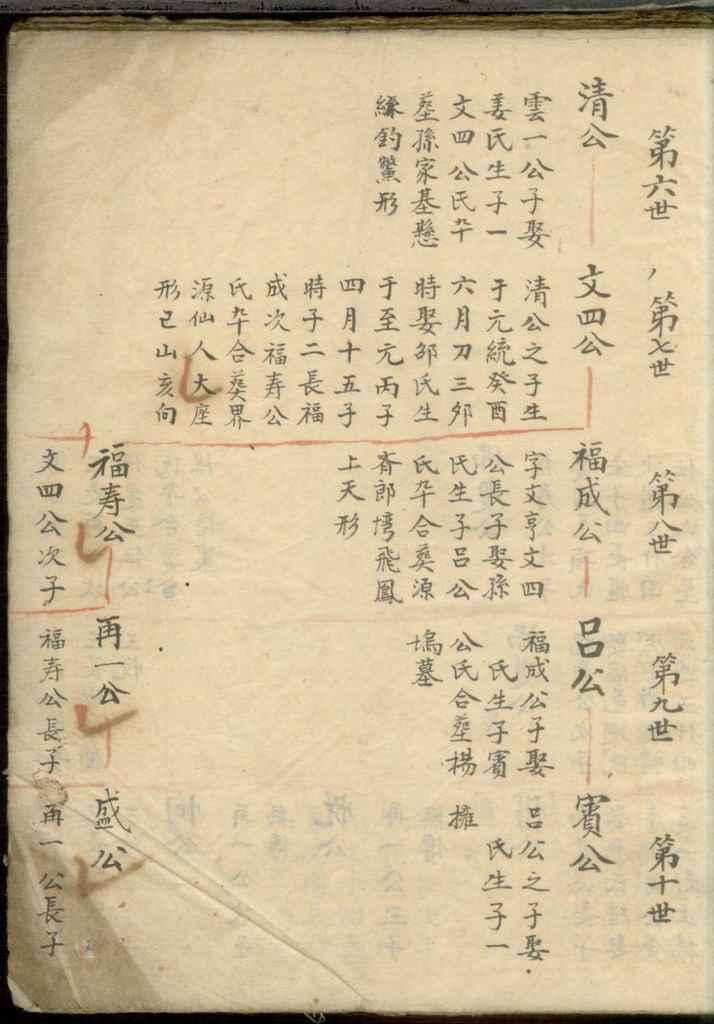 第六世
清公
雲一公子娶
姜氏生子一
文四公氏卒
塟孫家基懸
綵釣鱉形
第七世
文四公
清公之子生
于元統癸酉
六月刀三夘
時娶邵氏生
于至元丙子
四月十五子
時子二長福
成次福寿公
氏卒合葵界
源仙人大座
形已山亥向
第八世
福成公
字文亨文四
公長子娶孫
氏生子吕公
氏卒合葵源
斉郎塆飛鳳
上天形
福寿公
文四公次子
第九世
吕公
福成公子娶
氏生子賓
公氏合塟楊
塢墓
再一公
福寿公長子
第十世
賓公
吕公之子娶
氏生子一
擁
盛公
再一公長子